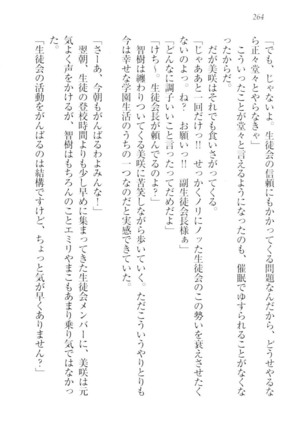 264
「でも、じゃないよ。生徒会の信頼にもかかってくる問題なんだから、どうせやるな
ら正々堂々とやらなきゃ」
こういったことが堂々と言えるようになったのも、催眠でゆすられることがなくな
ったからだ。
だが美咲はそれでも食いさがってくる。
「じゃああと一回だけっ!! せっかくノリにノッた生徒会のこの勢いを衰えさせたく
ないのよっ。ね? お願いっ!! 副生徒会長様ぁ」
「どんなに調子いいこと言ったってだめだよ」
「けち〜。生徒会長が頼んでるのよ?」
智樹は纏わりついてくる美咲に苦笑しながら歩いていく。ただこういうやりとりも
今は幸せな学園生活のうちの一つなのだと実感できていた。
「さーあ、今朝もがんばるわよみんな!」
翌朝、生徒の登校時間よりも少し早めに集まってきた生徒会メンバーに、美咲は元
気よく声をかけるが、智樹はもちろんのことエミリやまこもあまり乗り気ではなかっ
た。
「生徒会の活動をがんばるのは結構ですけど、ちょっと気が早くありません?」